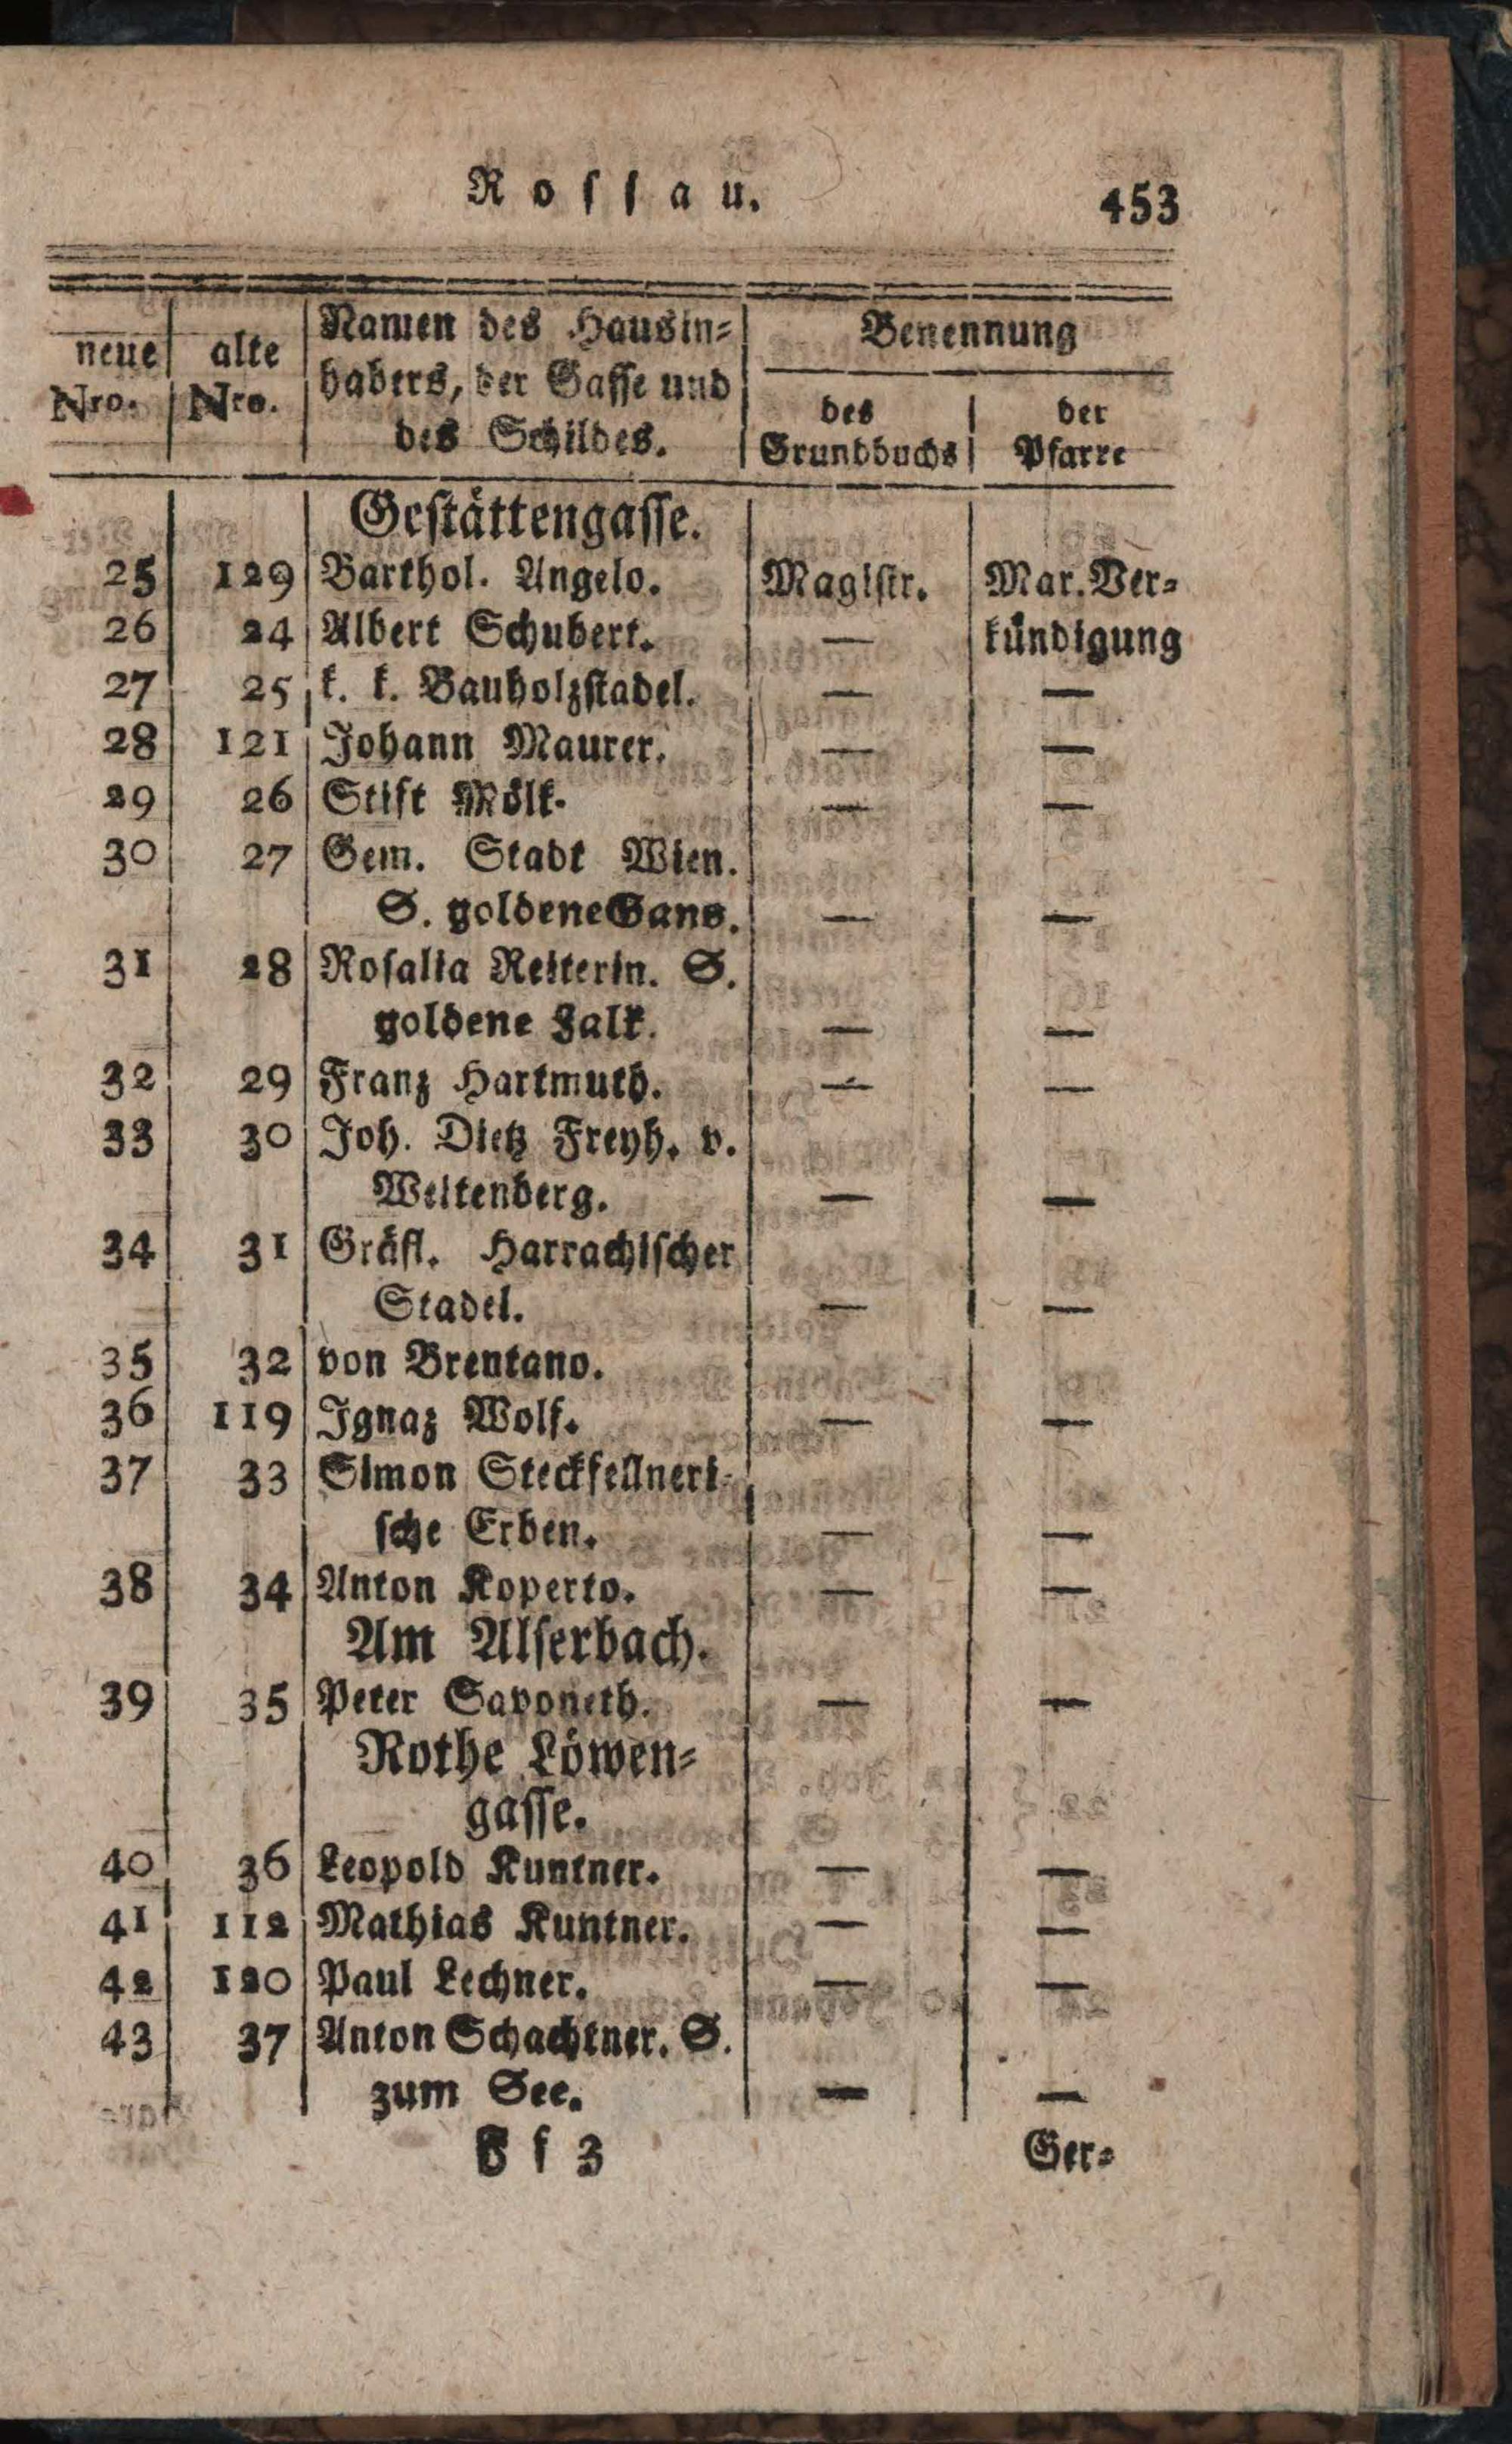 Rossau. 453
neue Nro. | alte Nro. | Namen des Hausin=
habers, der Gasse und
des Schildes. | Benennung
des Grundbuchs | der Pfarre
Gestättengasse.
25 129 Barthol. Angelo. Magistr. Mar. Ver=
26 24 Albert Schubert. — kündigung
27 25 k. k. Bauholzstadel. — —
28 121 Johann Maurer. — —
29 26 Stift Mölk. — —
30 27 Gem. Stadt Wien.
S. goldene Gans. — —
31 28 Rosalia Reiterin. S.
goldene Falk. — —
32 29 Franz Hartmuth. — —
33 30 Joh. Dietz Freyh. v.
Weitenberg. — —
34 31 Gräfl. Harrachischer
Stadel. — —
35 32 von Brentano.
36 119 Ignaz Wolf. — —
37 33 Simon Steckfellneri=
sche Erben. — —
38 34 Anton Koperto. — —
Am Alserbach.
39 35 Peter Savoneth. — —
Rothe Löwen=
gasse.
40 36 Leopold Kuntner. — —
41 112 Mathias Kuntner. — —
42 120 Paul Lechner. — —
43 37 Anton Schachtner. S.
zum See. — —
F f 3 Ger=